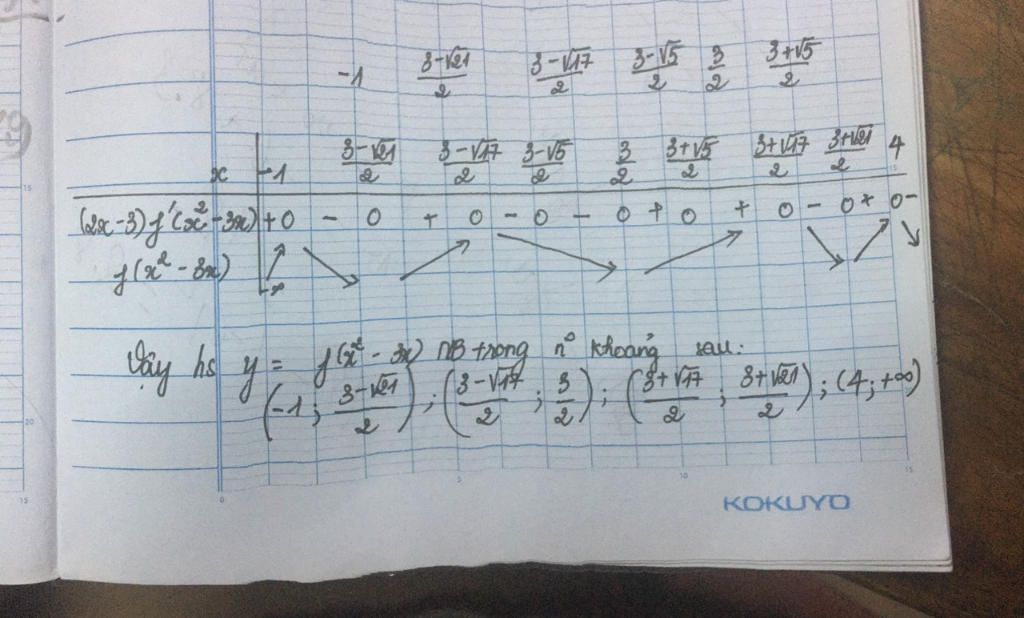 -1 (3-√21)/2 (3-√17)/2 (3-√5)/2 3/2 (3+√5)/2
x -1 (3-√21)/2 (3-√17)/2 (3-√5)/2 3/2 (3+√5)/2 (3+√17)/2 (3+√21)/2 4
(2x-3)f'(x²-3x) + 0 - 0 + 0 - 0 - 0 + 0 + 0 - 0 + 0 -
f(x²-3x) -∞
Vậy hs y = f(x²-3x) NB trong n⁰ khoảng sau:
(-1; (3-√21)/2); ((3-√17)/2; 3/2); ((3+√17)/2; (3+√21)/2); (4; +∞)
15
20
15
0
5
10
15
KOKUYO